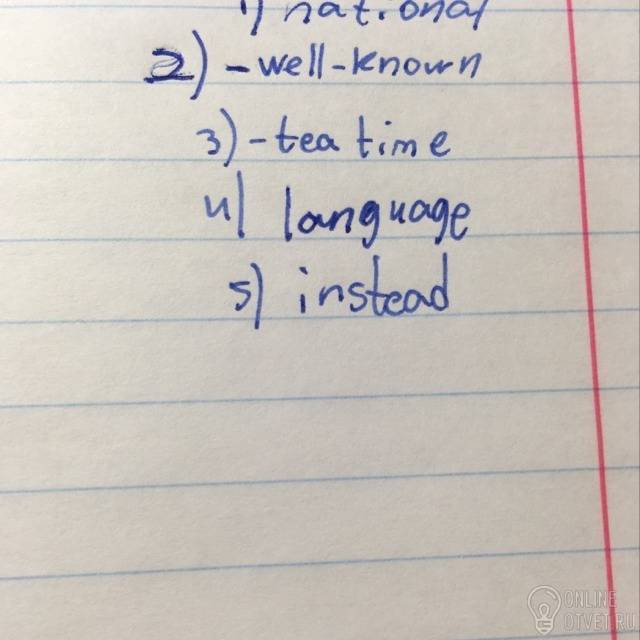 1) national
2) - well-known
3) - tea time
4) language
5) instead
ONLINE
OTVET.RU